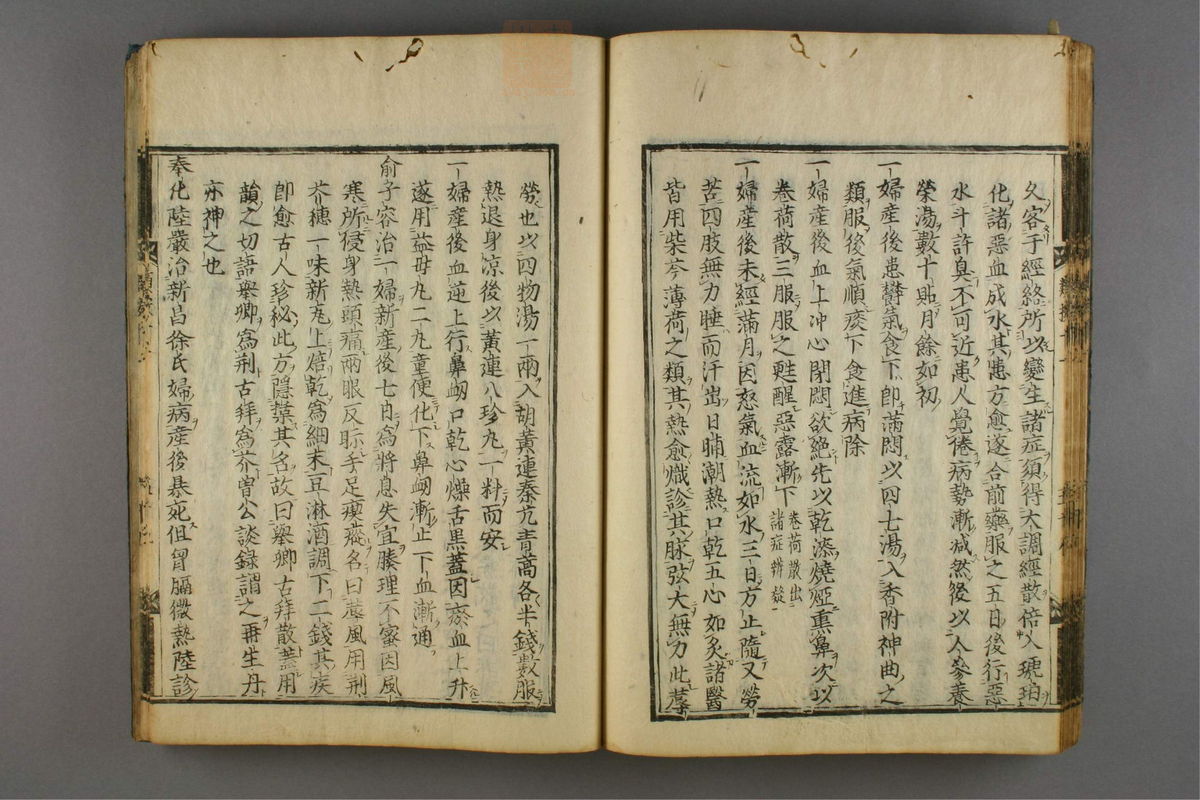 久客于經絡所以變生諸症須得大調經散倍入琥珀
化諸惡血成水其患方愈遂合前藥服之五日後行惡
水斗許臭不可近患人覺倦病勢漸減然後以人參養
榮湯數十貼月餘如初
一婦產後患鬱氣食下即滿悶以四七湯入香附神曲之
類服後氣順痰下食進病除
一婦產後血上冲心閉悶欲絕先以乾漆燒烟熏鼻次以
卷荷散三服服之甦醒惡露漸下卷荷散出諸症辨發
一婦產後未經滿月因怒氣血流如水三日方止隨又勞
苦四肢無力睡而汗出日晡潮熱口乾五心如炙諸醫
皆用柴芩薄荷之類其熱愈熾診其脉弦大無力此蓐
勞也以四物湯一兩入胡黃連秦艽青蒿各半錢數服
熱退身凉後以黃連八珍丸一料而安
一婦產後血逆上行鼻衂口乾心燥舌黑蓋因瘀血上升
遂用益母丸二丸童便化下鼻衂漸止下血漸通
俞子容治一婦新產後七日爲將息失宜腠理不密因風
寒所侵身熱頭痛兩眼反眎手足瘈瘲名曰蓐風用荆
芥穗一味新瓦上焙乾爲細末豆淋酒調下二錢其疾
即愈古人珍秘此方隱其名故曰擧卿古拜散蓋用
韻之切語擧卿爲荆古拜爲芥曽公談錄謂之再生丹
亦神之也
奉化陸嚴治新昌徐氏婦病產後暴死但胷膈微熱陸診